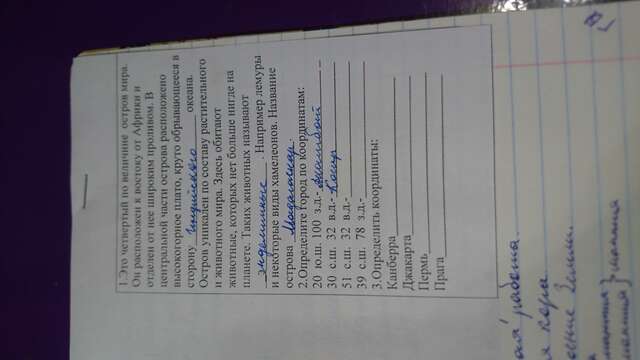 1.Это четвертый по величине остров мира.
Он расположен к востоку от Африки и
отделен от нее широким проливом. В
центральной части острова расположено
высокогорное плато, круто обрывающееся в
сторону Индийского океана.
Остров уникален по составу растительного
и животного мира. Здесь обитают
животные, которых нет больше нигде на
планете. Таких животных называют
эндемичные. Например лемуры
и некоторые виды хамелеонов. Название
острова Мадагаскар.
2.Определите город по координатам:
20 ю.ш. 100 з.д.-
30 с.ш. 32 в.д.- Каир
51 с.ш. 32 в.д.-
39 с.ш. 78 з.д.-
3.Определить координаты:
Канберра
Джакарта
Пермь
Прага
работа.
кора.
Земли.
мантия